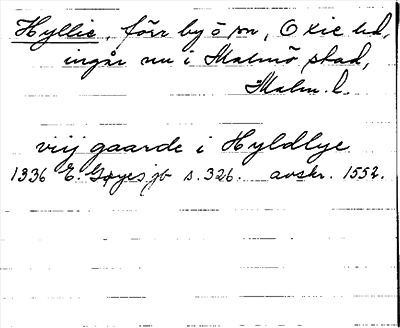 Hyllie, förr by ö sn, Oxie hd,
ingår nu i Malmö stad,
Malm. l.
viij gaarde i Hyldlye
1336 E. Gøyes jb s. 326. avskr. 1552.